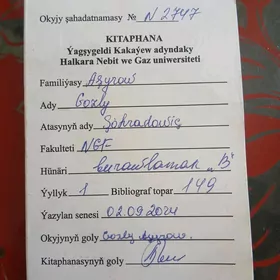 Okyjy şahadatnamasy № N 2747
KITAPHANA
Ýagşygeldi Kakaýew adyndaky
Halkara Nebit we Gaz uniwersiteti
Familiýasy Aşyrow
Ady Gozly
Atasynyň ady Şöhradowiç
Fakulteti NGF
Hünäri burawlamak „B”
Ýyllyk 1 Bibliograf topar 149
Ýazylan senesi 02.09.2024
Okyjynyň goly Gozly Aşyrow.
Kitaphanasynyň goly